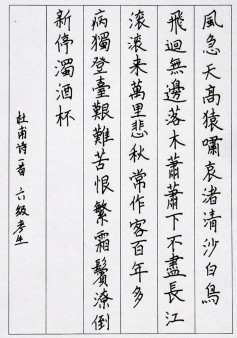 風急天高猿嘯哀渚清沙白鳥
飛迴無邊落木蕭蕭下不盡長江
滾滾来萬里悲秋常作客百年多
病獨登臺艱難苦恨繁霜鬢潦倒
新停濁酒杯
杜甫诗一首 六级考生